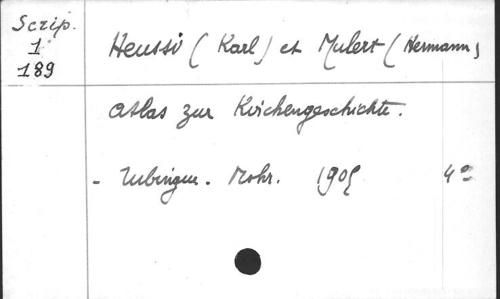 Scrip.
1
189
Heussi (Karl) et Mulert (Hermann)
Atlas zur Kirchengeschichte.
- Tubingen. Mohr. 1905 4°